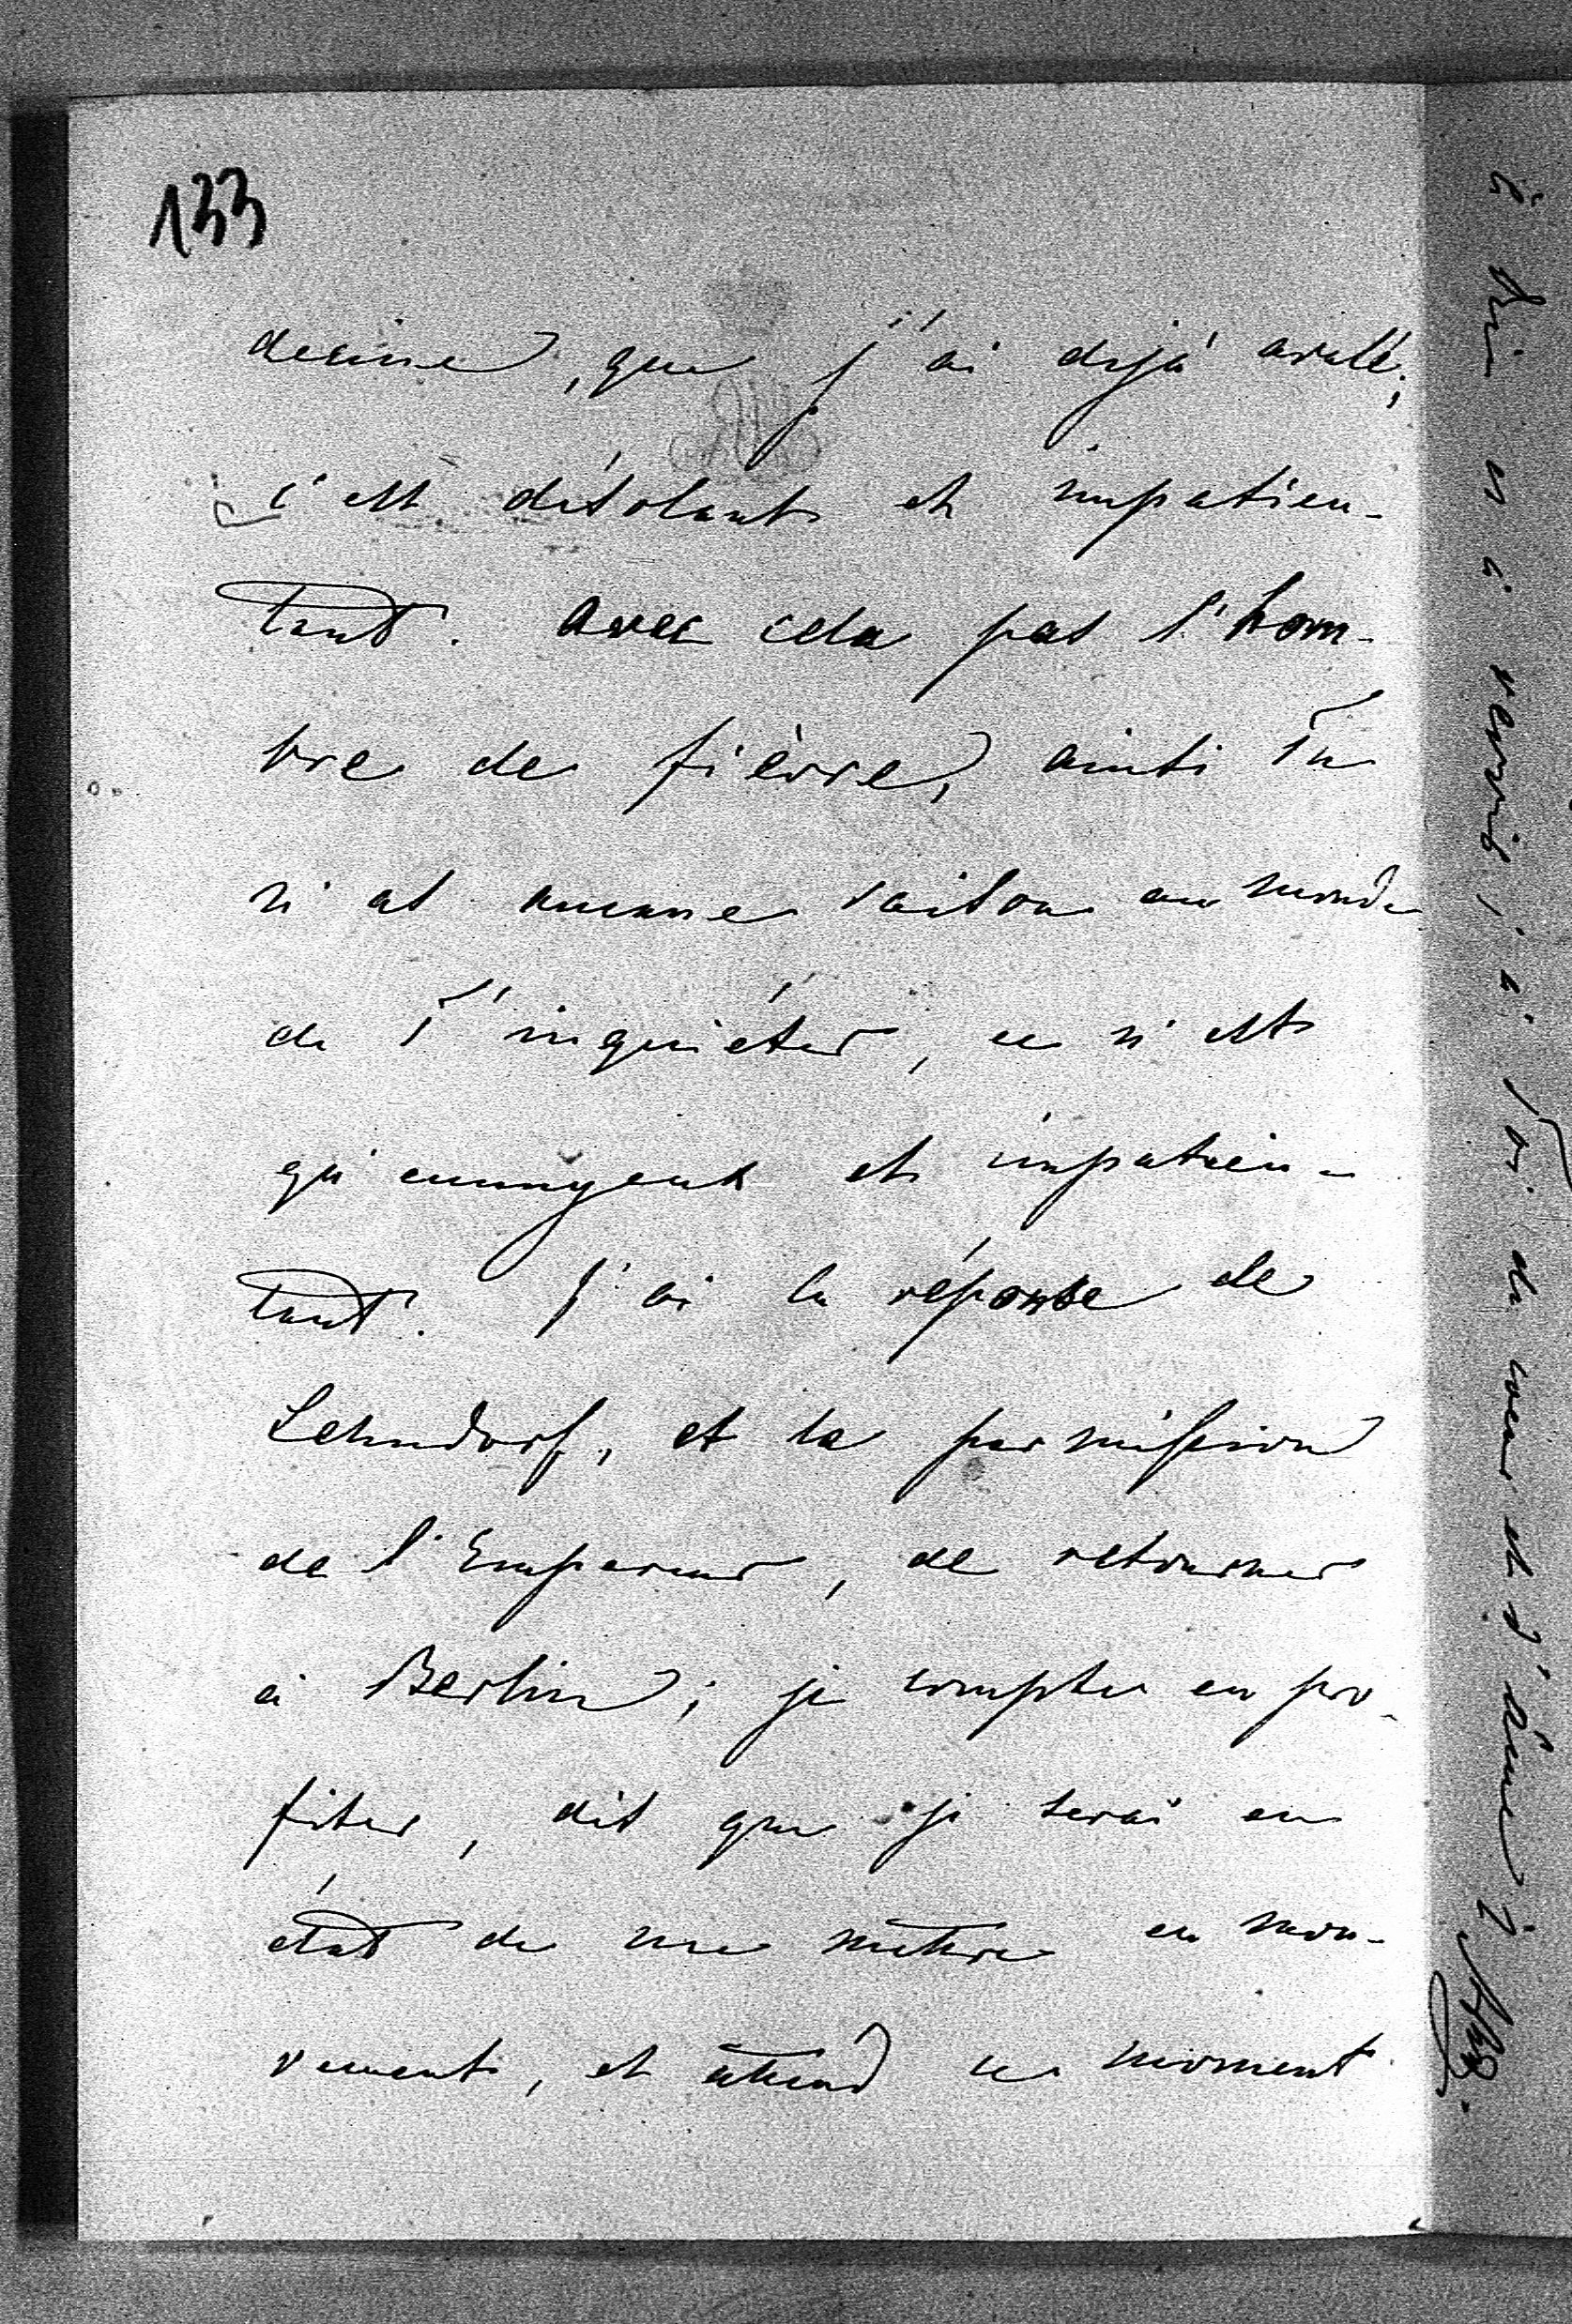 133
decine, que j'ai déjà avallé;
c'est désolant et impatien-
tant. Avec cela pas l'hom-
bre de fièvre, ainsi Tu
n'as aucune raison au monde
de T'inquiéter, ce n'est
qu'ennuyant et impatien-
tant. J'ai la réponse de
Lehndorf, et la permission
de l'Empereur, de retourner
à Berlin; je compte en pro-
fiter, dès que je serai en
état de me mettre en mou-
vement, et attend ce moment
à Toi de coeur et d'âme